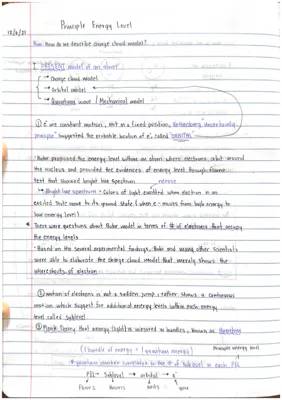 Principle Energy Level
12/6/21
Aim: How do we describe charge cloud model?
I. PRESENT model of an atom:
→ Charge cloud model
→ Orbital model
→ Quantum wave / Mechanical model
① e⁻ are constant motion, not in a fixed position,
principle" suggested the probable location of e⁻ called "ORBITAL"
· Bohr proposed the energy level within an atom where electrons orbit around
the nucleus and provided the evidences of energy level through flame
test that showed bright line spectrum
↳ Bright line spectrum - colors of light emitted when electron in an
excited state move to its ground state (when e⁻ moves from high energy to
low energy level)
There were questions about Bohr model in terms of # of electrons that occupy
the energy levels
· Based on the several experimental findings, Bohr and many other scientists
were able to elaborate the charge cloud model that merely shows the
whereabouts of electron
① motion of electrons is not a sudden jump, rather shows a continuous
motion which suggest for additional energy levels within each energy
level called sublevel
② Planck Theory that energy (light) is measured in bundles, known as
(1 bundle of energy = 1 quantum energy)
Principle energy level
quantum number correlates to the # of sublevel in each PEL
PEL → Sublevel → orbital → e⁻
Floors Rooms beds you